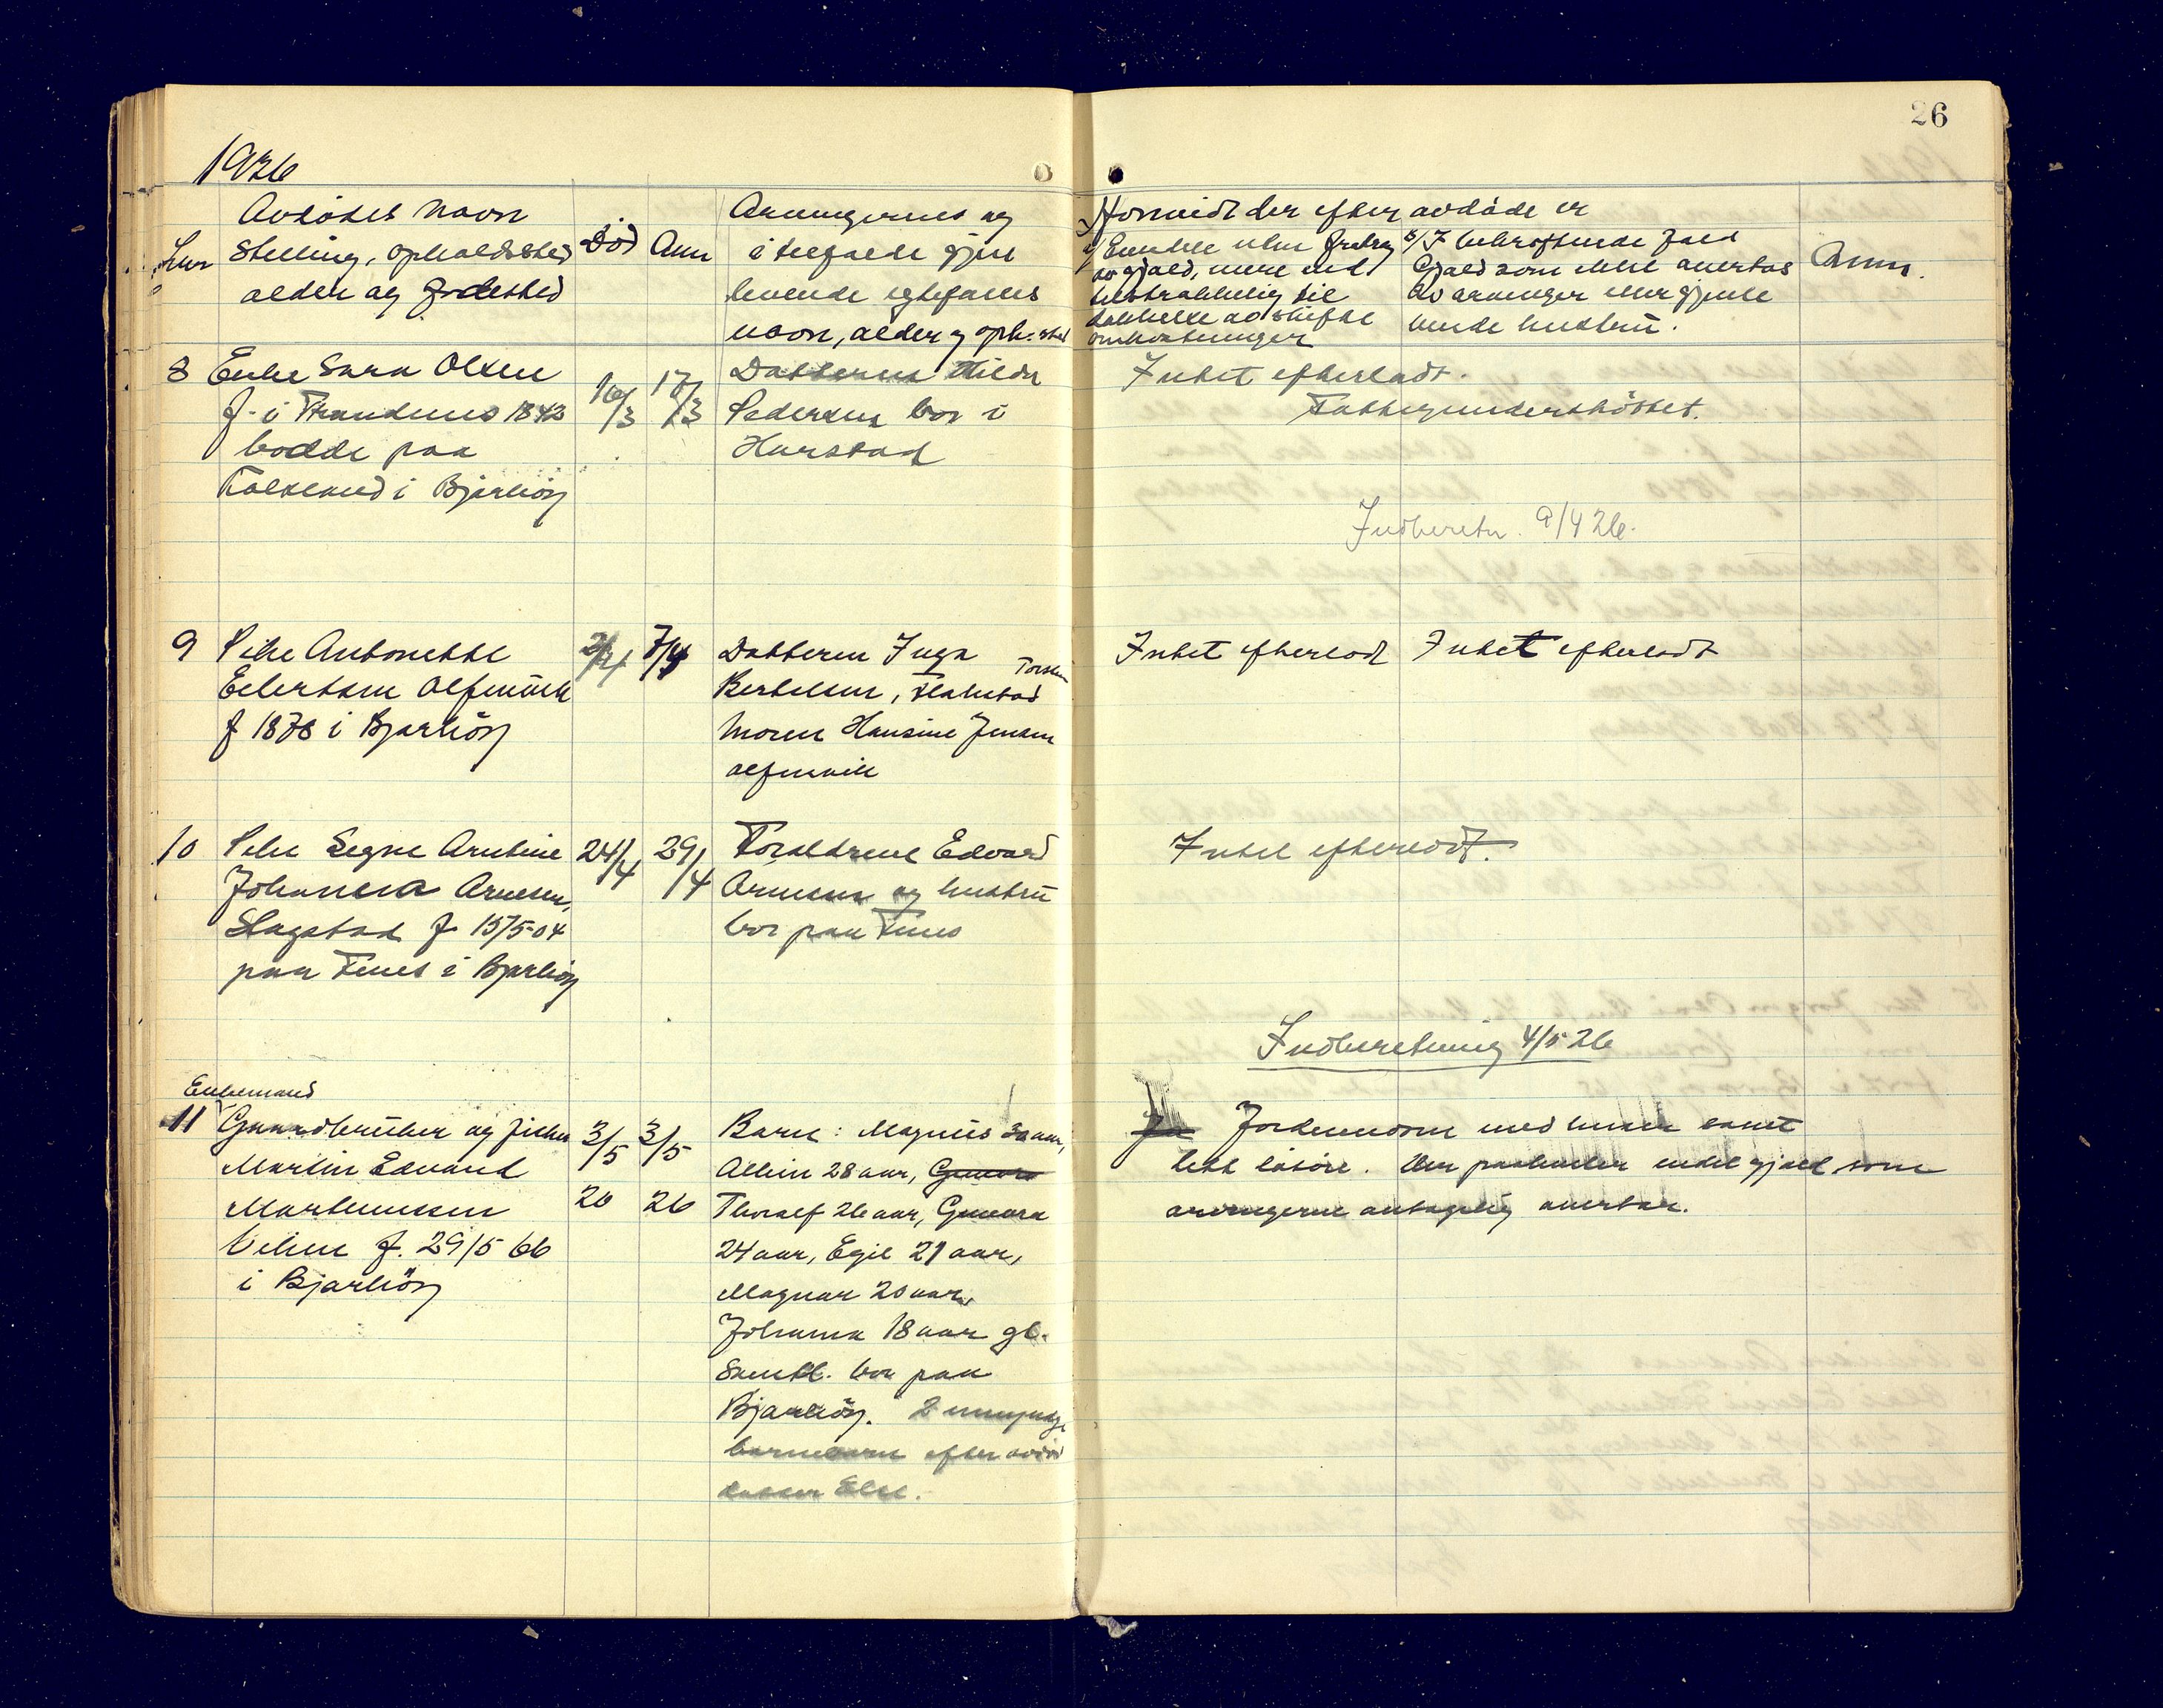 26
1926
Avdødes navn
Stilling, opholdssted
alder og fødested
Død
Anm
Arvingernes og
i tilfælde gjen
levende egtefælles
navn, alder og oph. sted
Hvorvidt der efter avdøde er
a/ Eiendele uten fradrag
av gjæld, mere end
tilstrækkelig til
dækkelse av skifte
omkostninger
b/ I bekræftende fald
Gjæld som ikke overtas
av arvinger eller gjenle
vende hustru.
Anm.
8 Enke Sara Olsen
f. i Trondenes 1842
bodde paa
i Bjarkøy
16/3
17/3
Datteren Hilda
Pedersen bor i
Harstad
Intet efterladt.
Fattigunderstøttet.
Indberetn. 9/4 26.
9 Pike Antonette
Eilertsen Alfsvåk
f 1878 i Bjarkøy
7/4
Datteren Inga
Bertelsen,
Moren Hansine Jensen
Intet efterladt Intet efterladt
10 Pike Signe Arntine
Johanna Arnesen,
Slagstad f. 15/5-04
paa Fenes i Bjarkøy
24/4
29/4
Forældrene Edvard
Arnesen og hustru
bor paa Fenes
Intet efterladt.
Indberetning 4/5 26
Enkemand
11 Gaardbruker og fisker
Martin Edvard
Martinussen
f. 29/5 66
i Bjarkøy
3/5
26
3/5
26
Barn: Magnus 30 aar,
28 aar, Gunvora
Thoralf 26 aar, Gunvora
24 aar, Egil 21 aar,
Magnar 20 aar,
Johanna 18 aar gl.
Samtl. bor paa
Bjarkøy. 2 umyndige
barnebarn efter avdød
datter Else.
Ja Jordeiendom med huser samt
litt løsøre. Der paahviler endel gjæld som
arvingerne antagelig overtar.